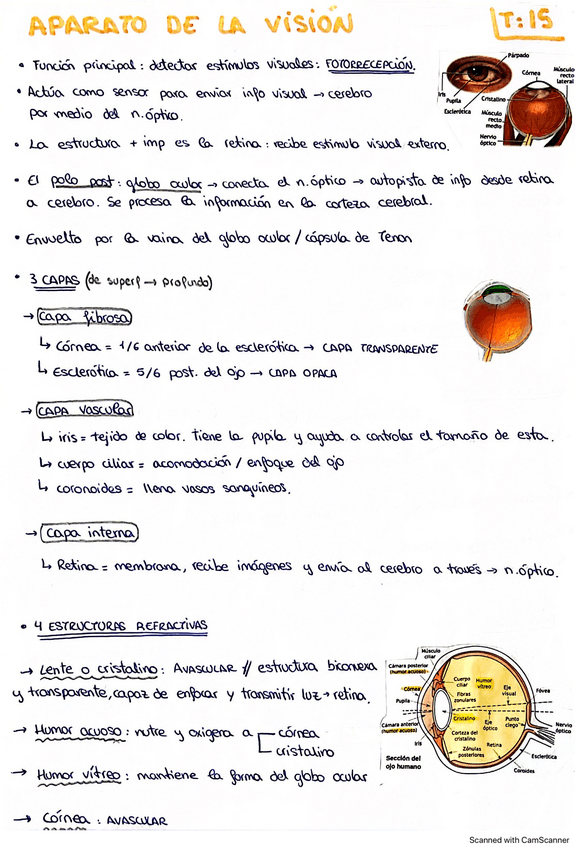 APARATO DE LA VISIÓN
T:15
• Función principal: detectar estímulos visuales: FOTORRECEPCIÓN.
• Actúa como sensor para enviar info visual → cerebro
por medio del n.óptico.
Párpado
Córnea
Músculo
recto
lateral
Iris
Pupila
Esclerótica
Cristalino
Músculo
recto
medio
Nervio
óptico
• La estructura + imp es la retina: recibe estímulo visual externo.
• El polo post: globo ocular → conecta el n.óptico → autopista de info desde retina
a cerebro. Se procesa la información en la corteza cerebral.
• Envuelto por la vaina del globo ocular / cápsula de Tenon
• 3 CAPAS (de superf → profundo)
→ Capa fibrosa
↳ Córnea = 1/6 anterior de la esclerótica → CAPA TRANSPARENTE
↳ Esclerótica = 5/6 post. del ojo → CAPA OPACA
→ CAPA VASCULAR
↳ iris = tejido de color. Tiene la pupila y ayuda a controlar el tamaño de esta.
↳ cuerpo ciliar = acomodación / enfoque del ojo
↳ coronoides = llena vasos sanguíneos.
→ Capa interna
↳ Retina = membrana, recibe imágenes y envía al cerebro a través → n.óptico.
• 4 ESTRUCTURAS REFRACTIVAS
→ Lente o cristalino: AVASCULAR // estructura biconvexa
y transparente, capaz de enfocar y transmitir luz → retina.
→ Humor acuoso: nutre y oxigena a córnea
cristalino
→ Humor vítreo: mantiene la forma del globo ocular
→ Córnea: AVASCULAR
Músculo
ciliar
Cámara posterior
(humor acuoso)
Córnea
Pupila
Cámara anterior
(humor acuoso)
Iris
Sección del
ojo humano
Cuerpo
ciliar
Humor
vítreo
Fibras
zonulares
Eje
visual
Fóvea
Cristalino
Eje
óptico
Punto
ciego
Nervio
óptico
Corteza del
cristalino
Retina
Zónulas
posteriores
Esclerótica
Coroides
Scanned with CamScanner